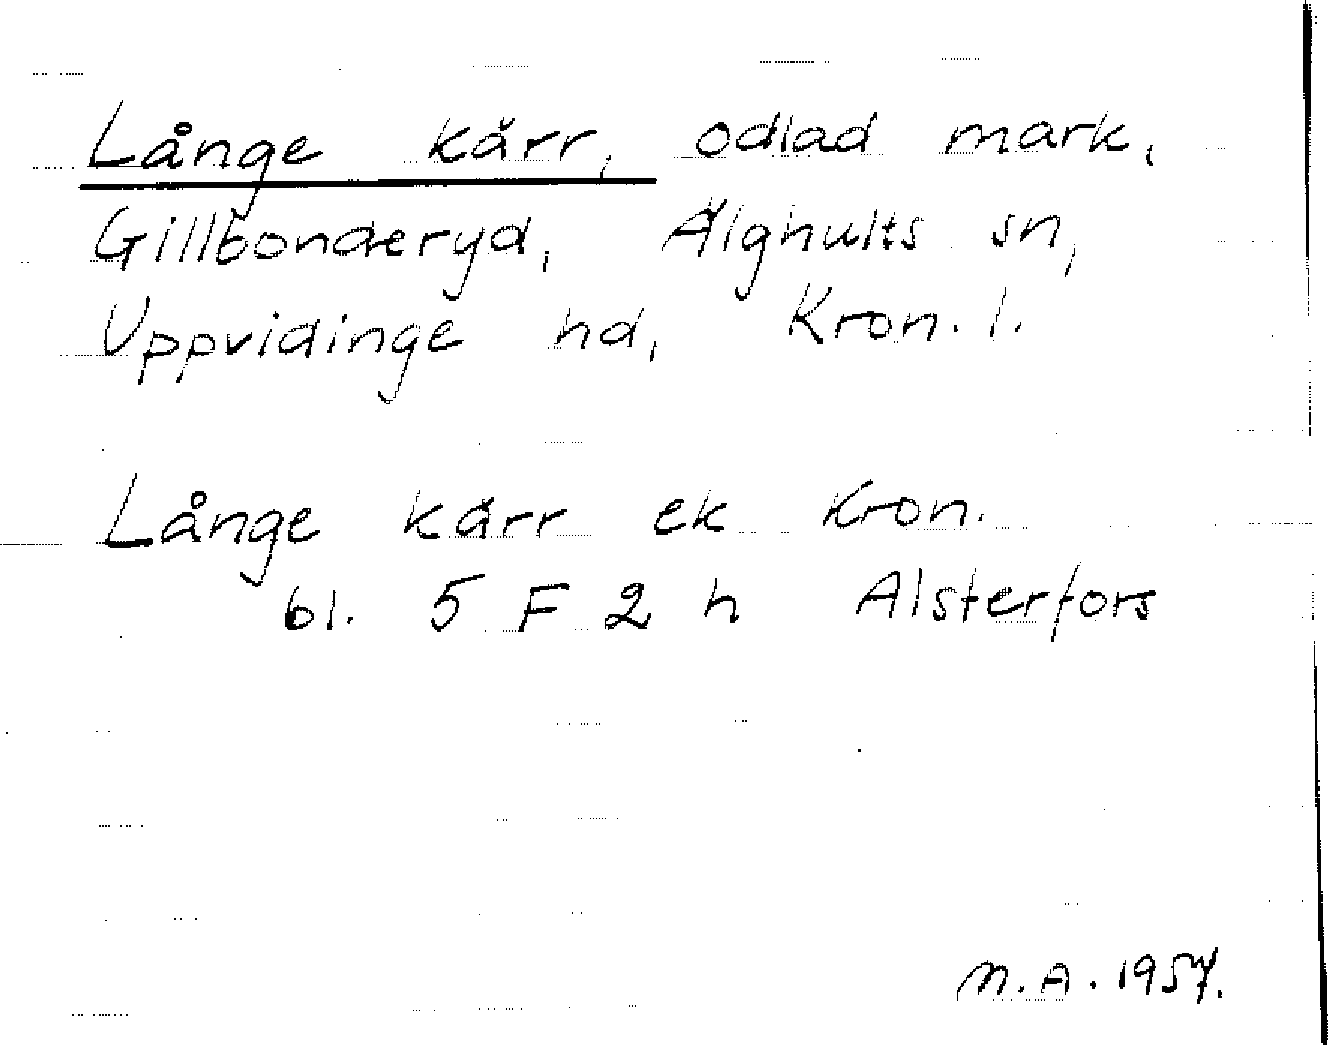 Långe kärr, odlad mark,
Gillbonderyd, Älghults sn,
Uppvidinge hd, Kron. l.
Långe kärr ek Kron.
bl. 5 F 2 h Alsterfors
M.A. 1957.